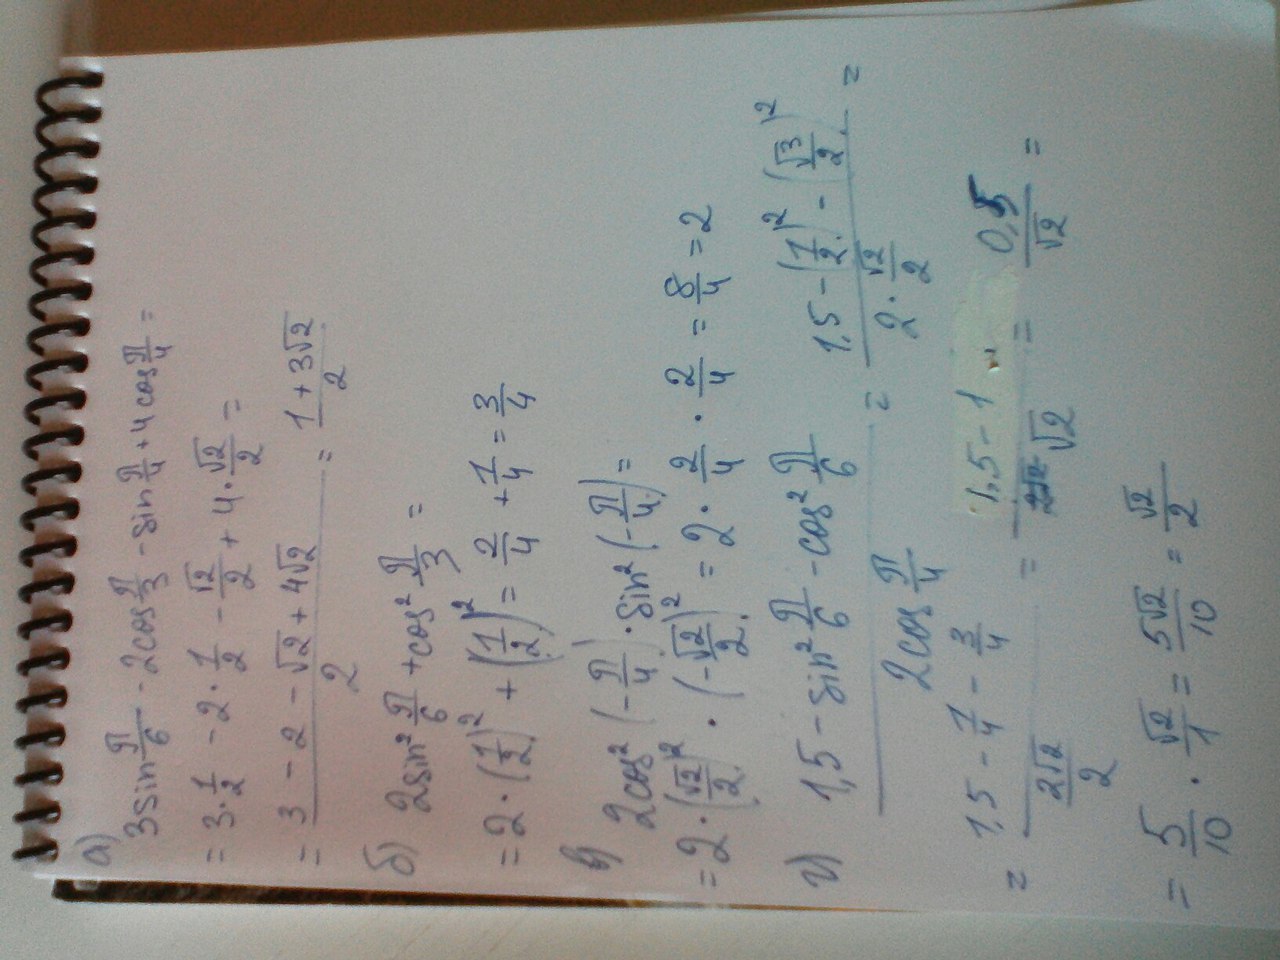 а) 3sin π/6 - 2cos π/3 - sin π/4 + 4cos π/4 =
= 3·1/2 - 2·1/2 - √2/2 + 4·√2/2 =
= (3 - 2 - √2 + 4√2)/2 = (1 + 3√2)/2
б) 2sin² π/6 + cos² π/3 =
= 2·(1/2)² + (1/2)² = 2/4 + 1/4 = 3/4
в) 2cos² (-π/4) · sin² (-π/4) =
= 2·(√2/2)² · (-√2/2)² = 2 · 2/4 · 2/4 = 8/4 = 2
г) (1,5 - sin² π/6 - cos² π/6)/(2cos π/4) = (1,5 - (1/2)² - (√3/2)²)/(2·√2/2) =
= (1,5 - 1/4 - 3/4)/(2√2/2) = (1,5 - 1)/√2 = 0,5/√2 =
= 5/10 · √2/1 = 5√2/10 = √2/2